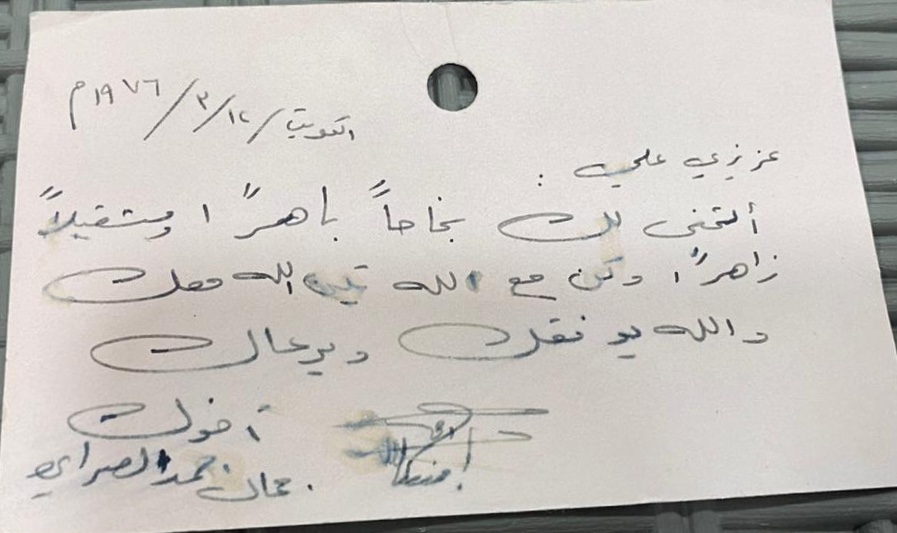 الكويت / ١٢ / ٣ / ١٩٧٦م
عزيزي علي :
أتمنى لك نجاحاً باهراً ومستقبلاً
زاهراً، وكن مع الله يكن الله معك
والله يوفقك ويرعاك
أخوك
حمد الصراي